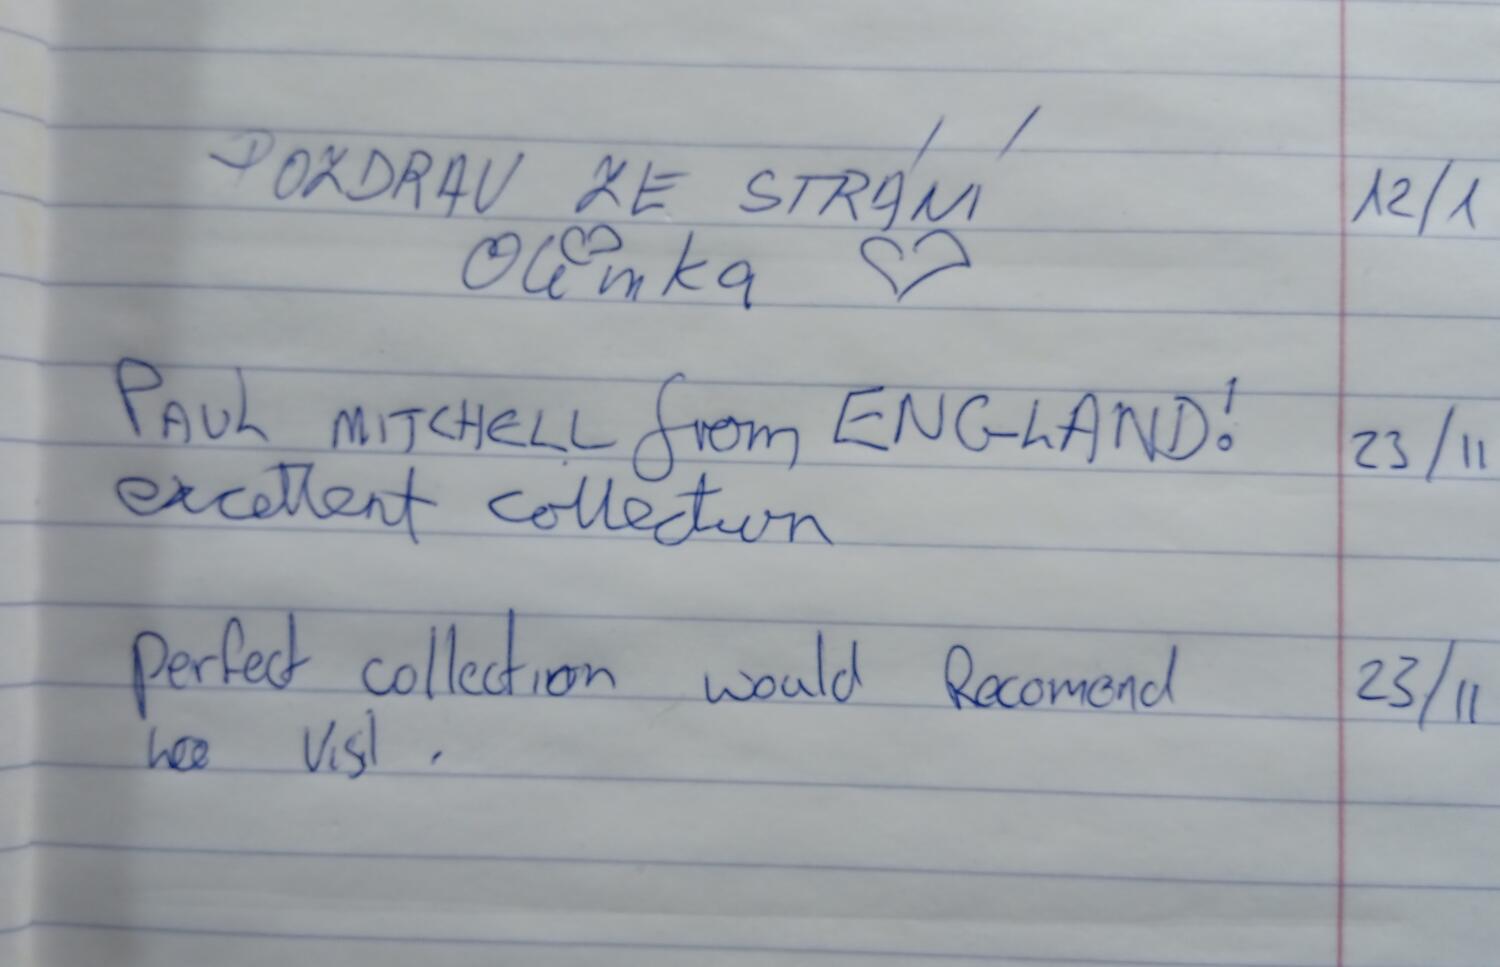 POZDRAV ZE STRÁNÍ 12/1
Olimka ♡
PAUL MITCHELL from ENGLAND! 23/11
excellent collection
perfect collection would Recomend 23/11